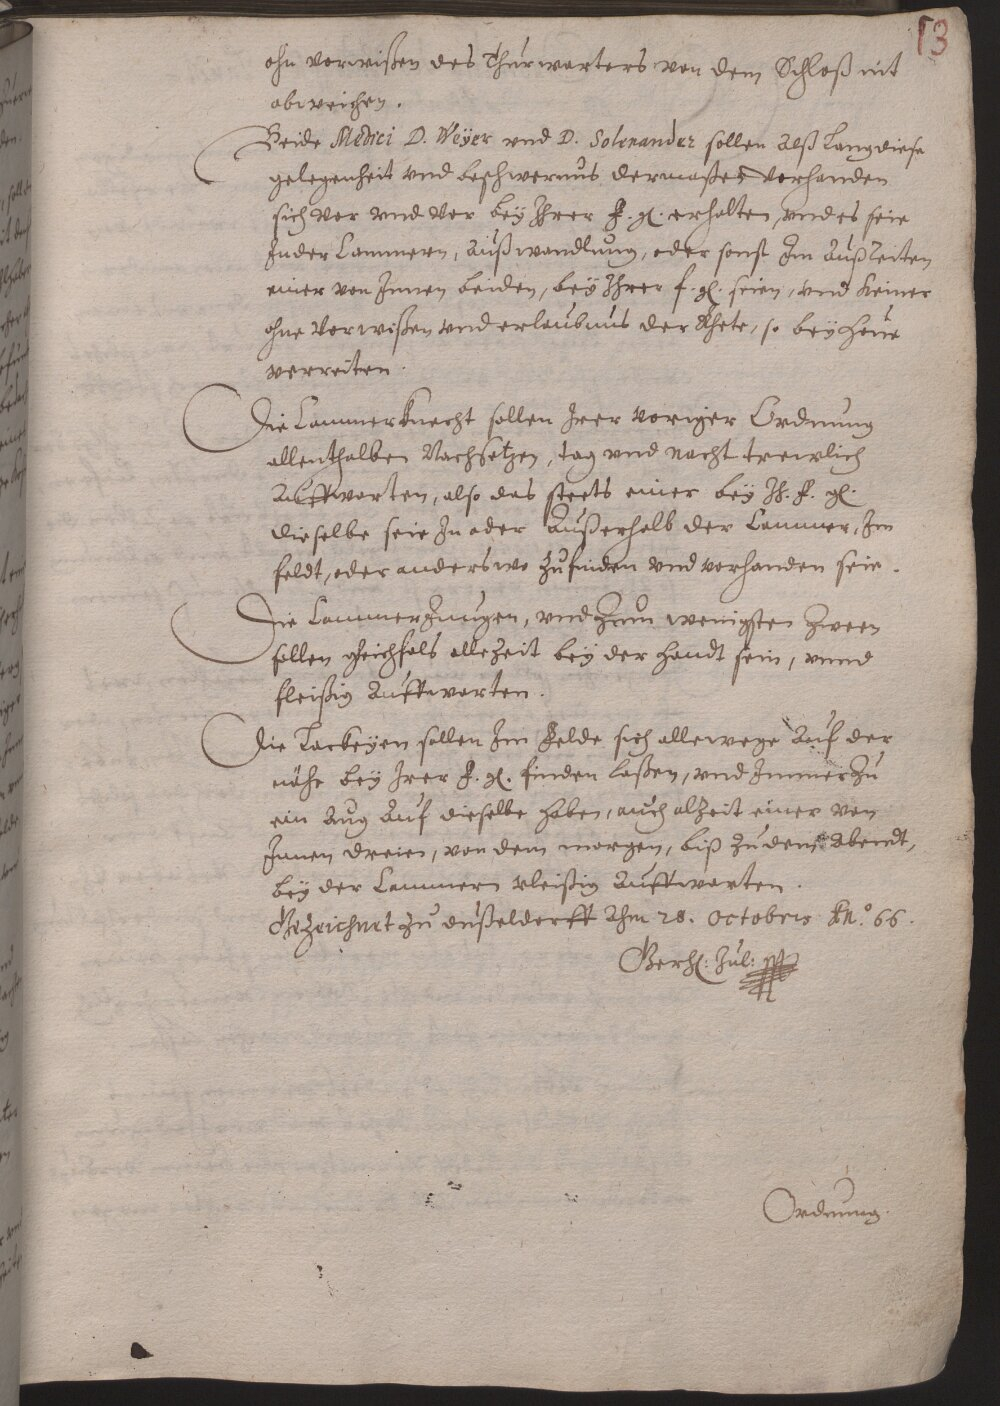 13
ohn vorwißen des Thurwarters von dem Schloß nit
abweichen.
Beide Medici D. Weyer vnd D. Solenander sollen alß lang diese
gelegenheit vnd beschwernus dermaßen vorhanden
sich vor vnd vor bey Ihrer F. G. erhalten, vnd es seie
In der Cammern, Außwandlung, oder sonst Im Außreiten
einer von Innen beiden, bey Ihrer f. G. seien, vnd keiner
ohne Vorwißen vnd erleubnus der Rhete, so bey Houe
verreiten.
Die Cammerknecht sollen Irer voriger Ordnung
allenthalben Nachsetzen, tag vnd nacht trewlich
Auffwarten, also das steets einer bey Ih. F. G.
dieselbe seie In oder Außerhalb der Cammer, Im
feldt, oder anderswo Zufinden vnd vorhanden seie.
Die Cammer Jungen, vnd Zum wenigsten Zween
sollen gleichfals alleZeit bey der handt sein, vnnd
fleißig Auffwarten.
Die Lackeyen sollen Im Felde sich allewege Auf der
nähe bey Irer F. G. finden laßen, vnd ImmerZu
ein Aug Auf dieselbe haben, auch alZeit einer von
Innen dreien, von dem morgen, biß Zu dem Abendt,
bey der Cammern vleißig Auffwarten.
GeZeichnet Zu Dußeldorff Ahm 28. Octobris An.o 66.
Gerh: Jul:
Ordnung.